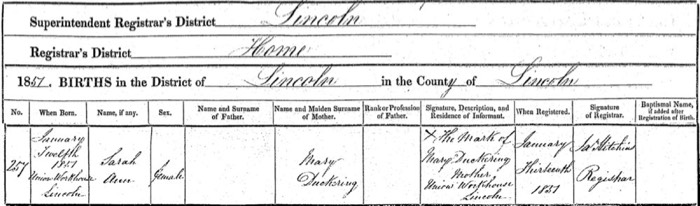 Superintendent Registrar's District Lincoln
Registrar's District Home
1851. BIRTHS in the District of Lincoln in the County of Lincoln
No. When Born. Name, if any. Sex. Name and Surname of Father. Name and Maiden Surname of Mother. Rank or Profession of Father. Signature, Description, and Residence of Informant. When Registered. Signature of Registrar. Baptismal Name, if added after Registration of Birth.
257
January
Twelfth
1851
Union Workhouse
Lincoln
Sarah
Ann
female
Mary
Duckering
X The Mark of
Mary Duckering
Mother,
Union Workhouse
Lincoln
January
Thirteenth
1851
Registrar